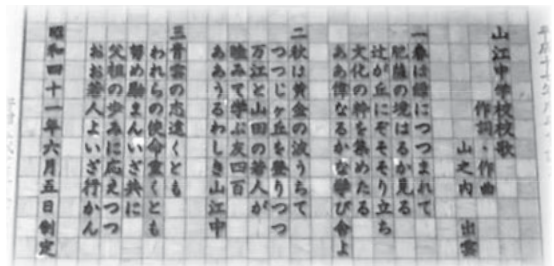 山江中学校校歌
作詞・作曲
山之内 出雲
一春は緑につつまれて
肥薩の境はるか見る
辻が丘にぞそそり立ち
文化の粋を集めたる
ああ偉なるかな学び舎よ
二秋は黄金の波うちて
つつじヶ丘を登りつつ
万江と山田の若人が
睦みて学ぶ友四百
ああうるわしき山江中
三青雲の志遠くとも
われらの使命重くとも
努め励まんいざ共に
父祖の歩みに応えつつ
おお若人よいざ行かん
昭和四十一年六月五日制定